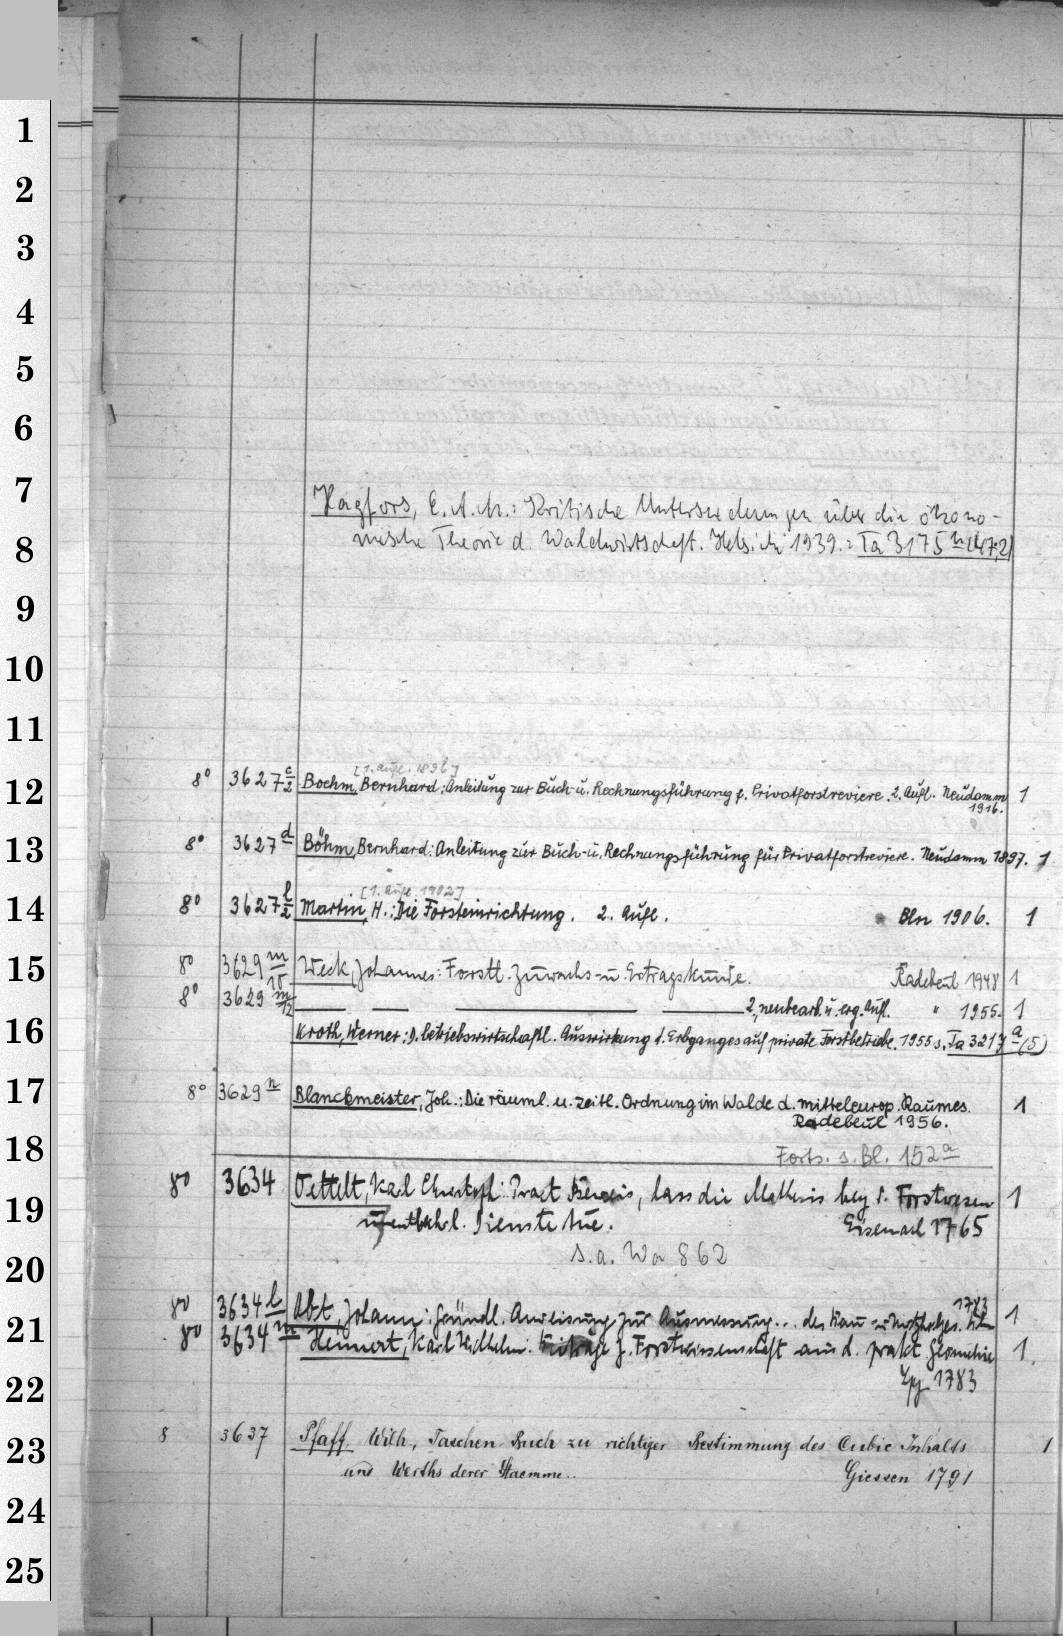 1
2
3
4
5
6
7
Hagfors, E. A. M.: Kritische Untersuchungen über die ökono-
8
mische Theorie d. Waldwirtschaft. Helsinki 1939. : Ta 3175 n (47,2)
9
10
11
[1. Aufl. 1896]
12
8° 3627 c/2 Boehm, Bernhard: Anleitung zur Buch- u. Rechnungsführung f. Privatforstreviere. 2. Aufl. Neudamm 1
1916.
13
8° 3627 d Böhm, Bernhard: Anleitung zur Buch- u. Rechnungsführung für Privatforstreviere. Neudamm 1897. 1
[1. Aufl. 1902]
14
8° 3627 l/2 Martin, H.: Die Forsteinrichtung. 2. Aufl. Bln 1906. 1
15
8° 3629 m Weck, Johannes: Forstl. Zuwachs- u. Ertragskunde. Radebeul 1948 1
8° 3629 m/12 — — — — 2., neubearb. u. erg. Aufl. " 1955. 1
16
Kroth, Werner: D. betriebswirtschaftl. Auswirkung d. Erbganges auf private Forstbetriebe. 1955 s. Ta 3217 a (5)
17
8° 3629 n Blanckmeister, Joh.: Die räuml. u. zeitl. Ordnung im Walde d. mitteleurop. Raumes. 1
Radebeul 1956.
18
Forts. s. Bl. 152 a
8° 3634 Oettelt, Karl Christoph: Pract. Beweis, dass die Mathesis bey d. Forstwesen 1
19
unentbehrl. Dienste tue. Eisenach 1765
20
s. a. Wa 862
1783
8° 3634 l Abt, Johann: Gründl. Anweisung zur Ausmessung... des Bau- u. 1
21
8° 3634 m Hennert, Karl Wilhelm: Beiträge z. Forstwissenschaft aus d. prakt. Geometrie 1.
22
Lpz. 1783
23
8 3637 Pfaff Wilh, Taschen Buch zu richtiger Bestimmung des Cubic Inhalts 1
und Werths derer Staemme.. Giessen 1791
24
25